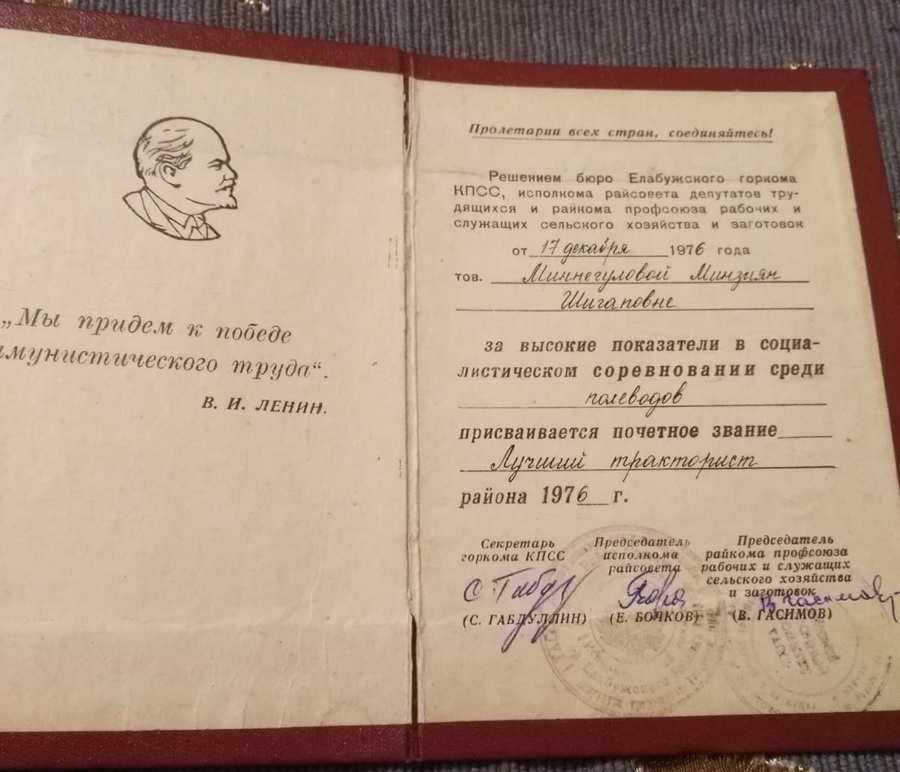 „Мы придем к победе
мунистического труда“.
В. И. ЛЕНИН.
Пролетарии всех стран, соединяйтесь!
Решением бюро Елабужского горкома
КПСС, исполкома райсовета депутатов тру-
дящихся и райкома профсоюза рабочих и
служащих сельского хозяйства и заготовок
от 17 декабря 1976 года
тов. Миннегуловой Минзиян
Шигаповне
за высокие показатели в социа-
листическом соревновании среди
полеводов
присваивается почетное звание
Лучший тракторист
района 1976 г.
Секретарь
горкома КПСС
(С. ГАБДУЛЛИН)
Председатель
исполкома
райсовета
(Е. БОЧКОВ)
Председатель
райкома профсоюза
рабочих и служащих
сельского хозяйства
и заготовок
(В. ГАСИМОВ)